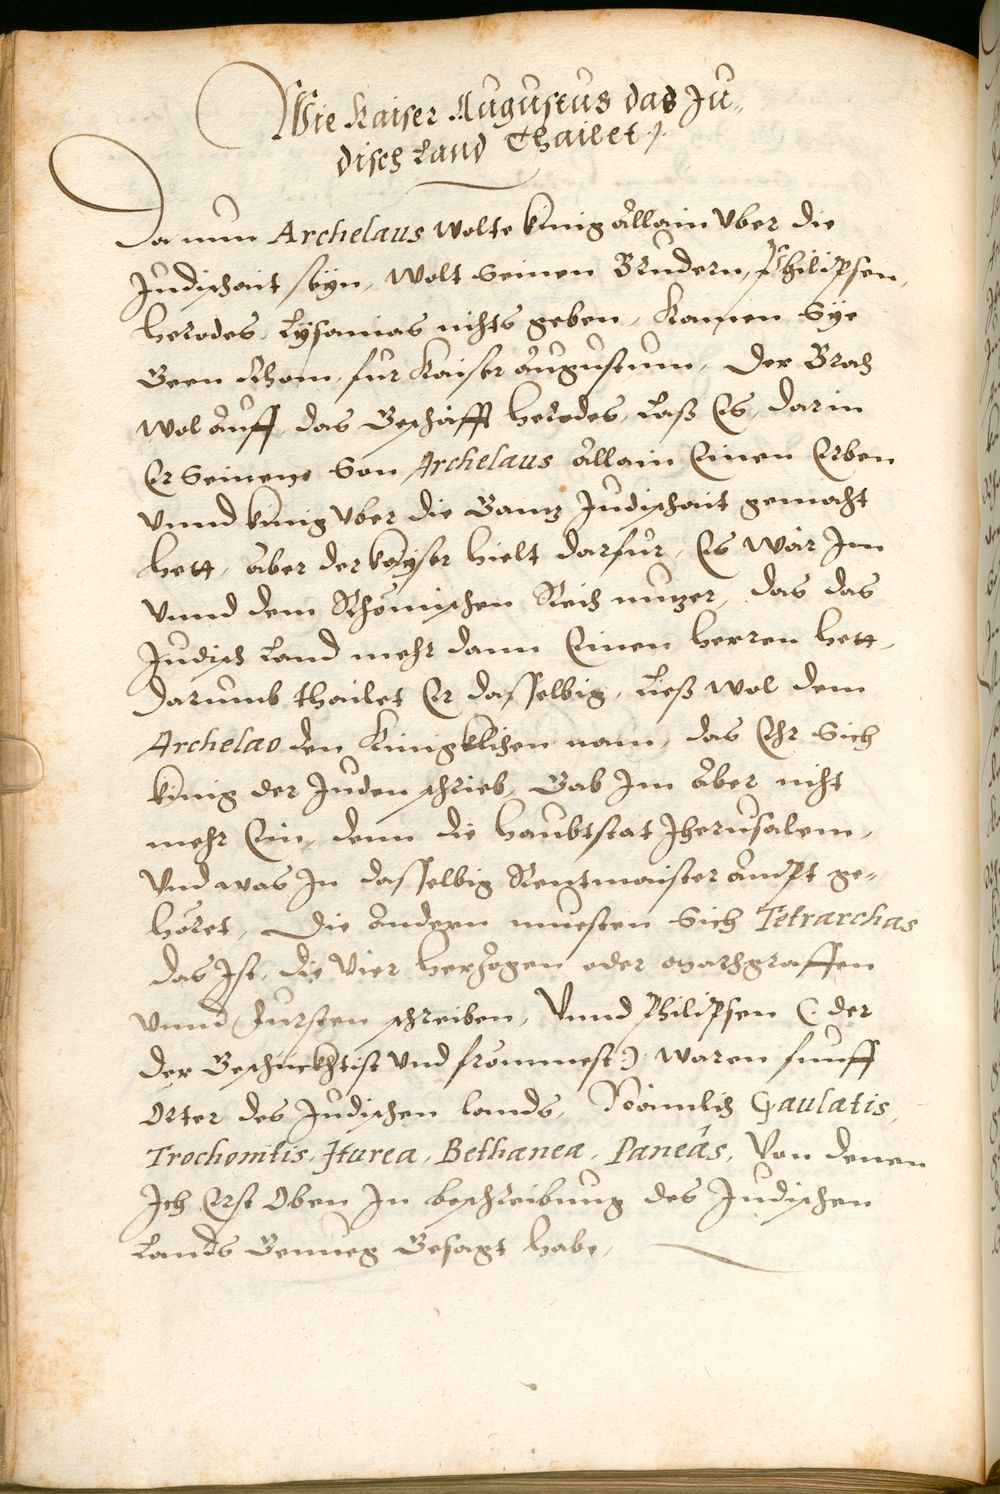 Wie Kaiser Augustus das Ju-
disch Land Thailet.
Da nun Archelaus wolte künig allain uber die
Judischait seyn, wolt Seinen Brudern, Philipsen,
herodes, Lysanias nichts geben, Kamen Sye
Geen Rhom, für Kaiser augustum, Der Brach
wol auff, das Geschäfft herodes, Laß Es, darin
Er Seinem Son Archelaus allain Einen Erben
vnnd künig vber die Gantz Judischait gemacht
hett, aber der kayser hielt darfür, Es wär Im
vnnd dem Rhömischen Reich nutzer, das das
Judisch Land mehr dann Einen herren hett,
darumb thailet Er dasselbig, Ließ wol dem
Archelao den Künigklichen nam, das Ehr Sich
künig der Juden schrieb, Gab Im aber nicht
mehr Ein, denn die haubtstat Jherusalem,
Vnd was In dasselbig Rentmaister ampt ge-
höret, Die andern muesten Sich Tetrarchas
das Ist, die Vier herzogen oder marchgraffen
vnnd Fursten schreiben, Vnnd Philipsen (: der
der Geschickhtist vnd frömmest :) waren funff
Orter des Judischen lands, Nämlich Gaulatis,
Trochonitis, Iturea, Bethanea, Paneas, Von denen
Ich Erst Oben In beschreibung des Judischen
Lands Genueg Gesagt habe,